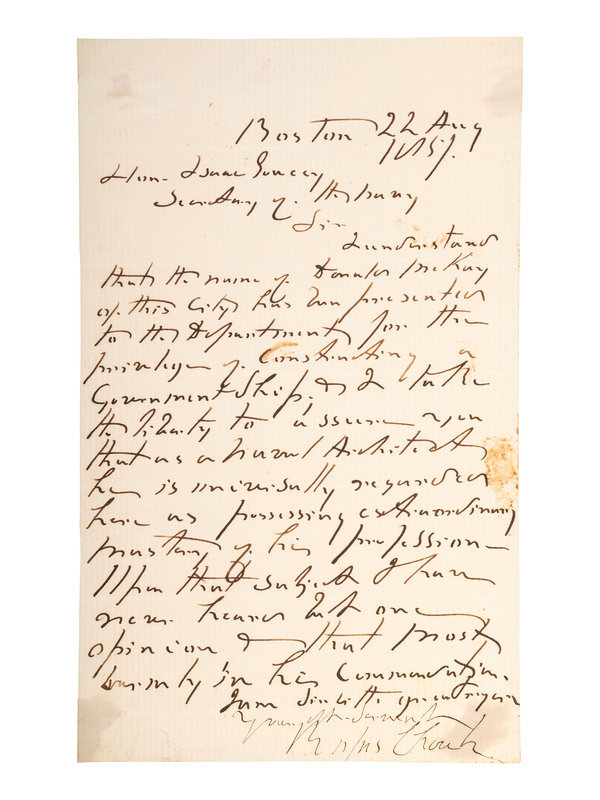 Boston 22 Aug
1857.
Hon. Isaac Toucey
Secretary of the Navy
Sir
I understand
that the name of Donald McKay
of this City has been presented
to the Department for the
privilege of Constructing a
Government Ship, & I take
the liberty to assure you
that as a Naval Architect
he is universally regarded
here as possessing extraordinary
mastery of his profession—
Upon that subject I have
never heard but one
opinion & that most
warmly in his Commendation.
I am Sir with great regard
Your obt. Servant
Rufus Choate